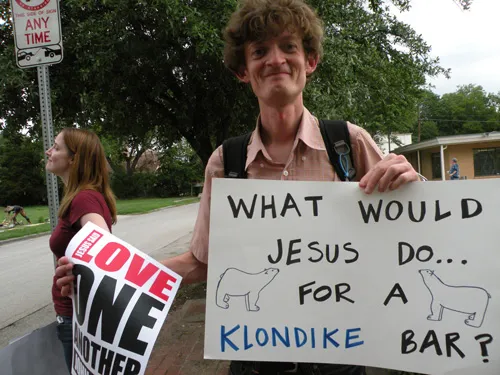 ANY
TIME
JESUS SAID
LOVE
ONE
ANOTHER
WHAT WOULD
JESUS DO...
FOR A
KLONDIKE BAR?